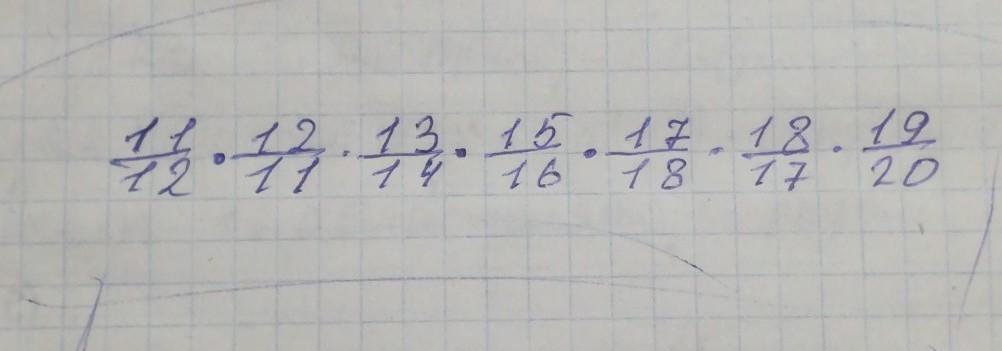 11/12 · 12/11 · 13/14 · 15/16 · 17/18 · 18/17 · 19/20